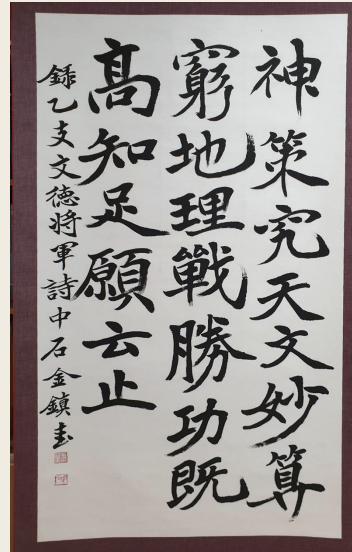 神策究天文妙算
窮地理戰勝功旣
高知足願云止
錄乙支文德將軍詩中石金鎭